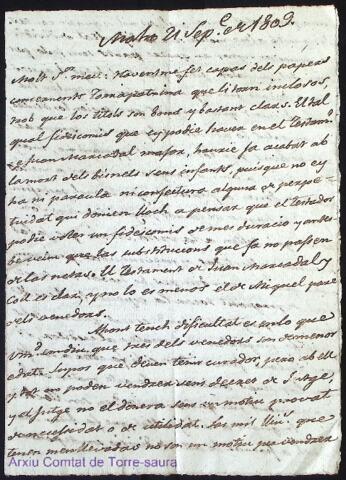 Maho 21 Sep.e de 1802.
Molt Sr. meu: Havent me fet capas dels papers
concernents Tamapatrina que li torn inclosos,
trob que los titols son bons y bastant clars. El tal
qual fideicomis que ey podie haver en el testamt.
de Juan Marcadal major, hauria fet acabat ab
la mort dels bisnets sens infants, puisque no ey
ha ni paraula ni conjectura alguna de perpe-
tuidat que donien lloch a pensar que el testador
podie voler un fideicomis de mes duracio y antes
be veim que las substitucions que fa no passen
de las netas. El testament de Juan Marcadal y
Coll es clar, y no lo es menos el de Miquel pare
dels venedors.
Ahont tench dificultat es en lo que
Vmd. em diu que tres dels venedors son de menor
edat. Supos que deuen tenir curador, pero ab ell
y tot no poden vendrer sens decret de Jutge,
y el Jutge no el donera sens un motiu provat
de necessidat o de utilidat. Las mil lliu.s que
tenen manllevadas no son un motiu per vendrer
Arxiu Comtat de Torre-saura